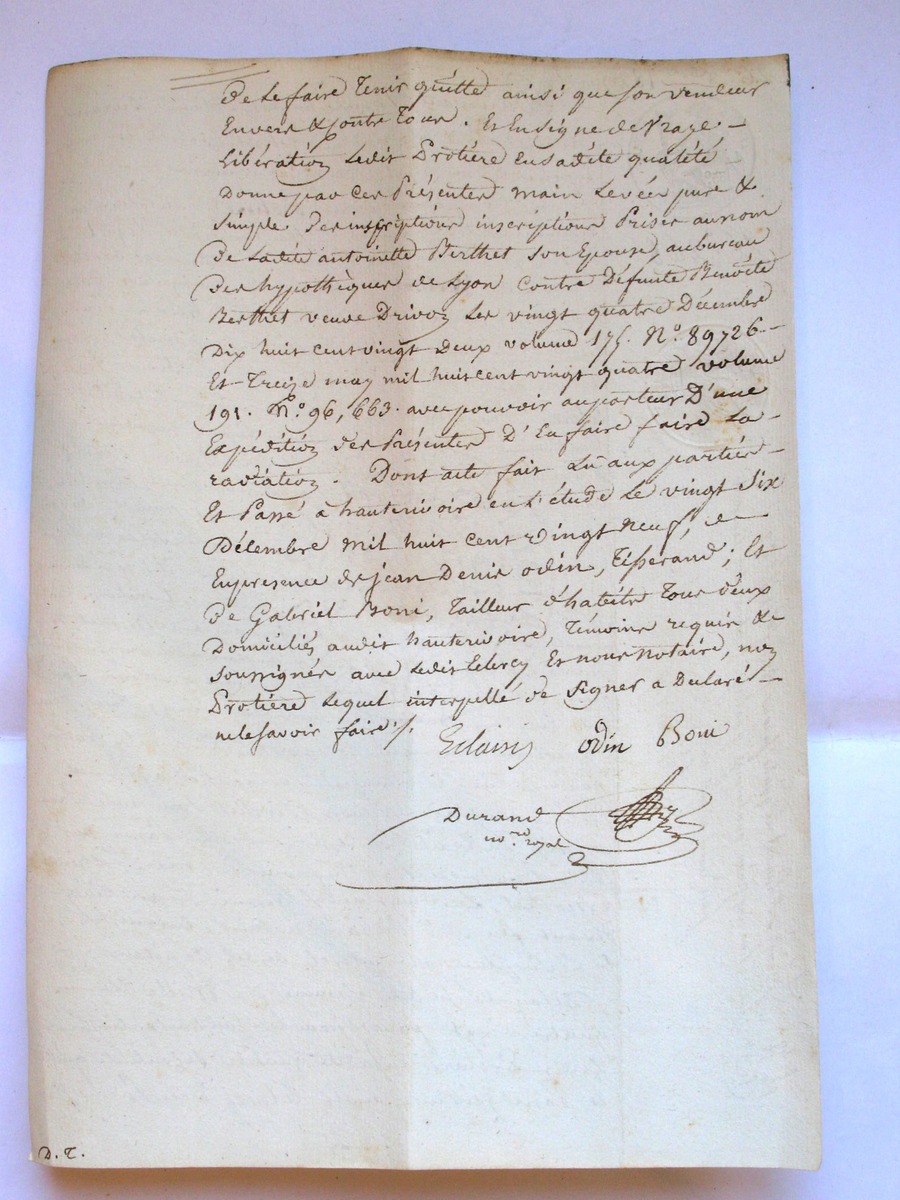 De Le faire Tenir quitte ainsi que son vendeur
Envers & Contre Tous. Et En Signe de Vraye –
Libération Ledit Protiere en sadite qualité
Donne par ces Présentes main Levée pure &
Simple Des inscriptions inscriptions Prises au nom
De Ladite antoinette Berthet son Epouse, au bureau
Des hypothèques de Lyon Contre Défunte Benoite
Berthet veuve Drivon Les vingt quatre Décembre
Dix huit cent vingt Deux volume 175. N.o 89726 –
Et Treize may mil huit cent vingt quatre volume
191. N.o 96,663. avec pouvoir au porteur D'une
Expédition des Présentes D'En faire faire La –
radiation. Dont acte fait Lu aux parties –
Et Passé à hauterivoire en L'étude Le vingt Six
Décembre mil huit cent vingt neuf, –
En presence de jean Denis odin, Tisserand; Et
De Gabriel Boni, Tailleur d'habits Tous deux
Domiciliés audit hauterivoire, Témoins requis &
soussignés avec Ledit Et nous Notaire, non
Protiere Lequel interpellé de signer a Déclaré –
ne le savoir faire ./.
odin Boni
Durand
no.re royal
D. T.